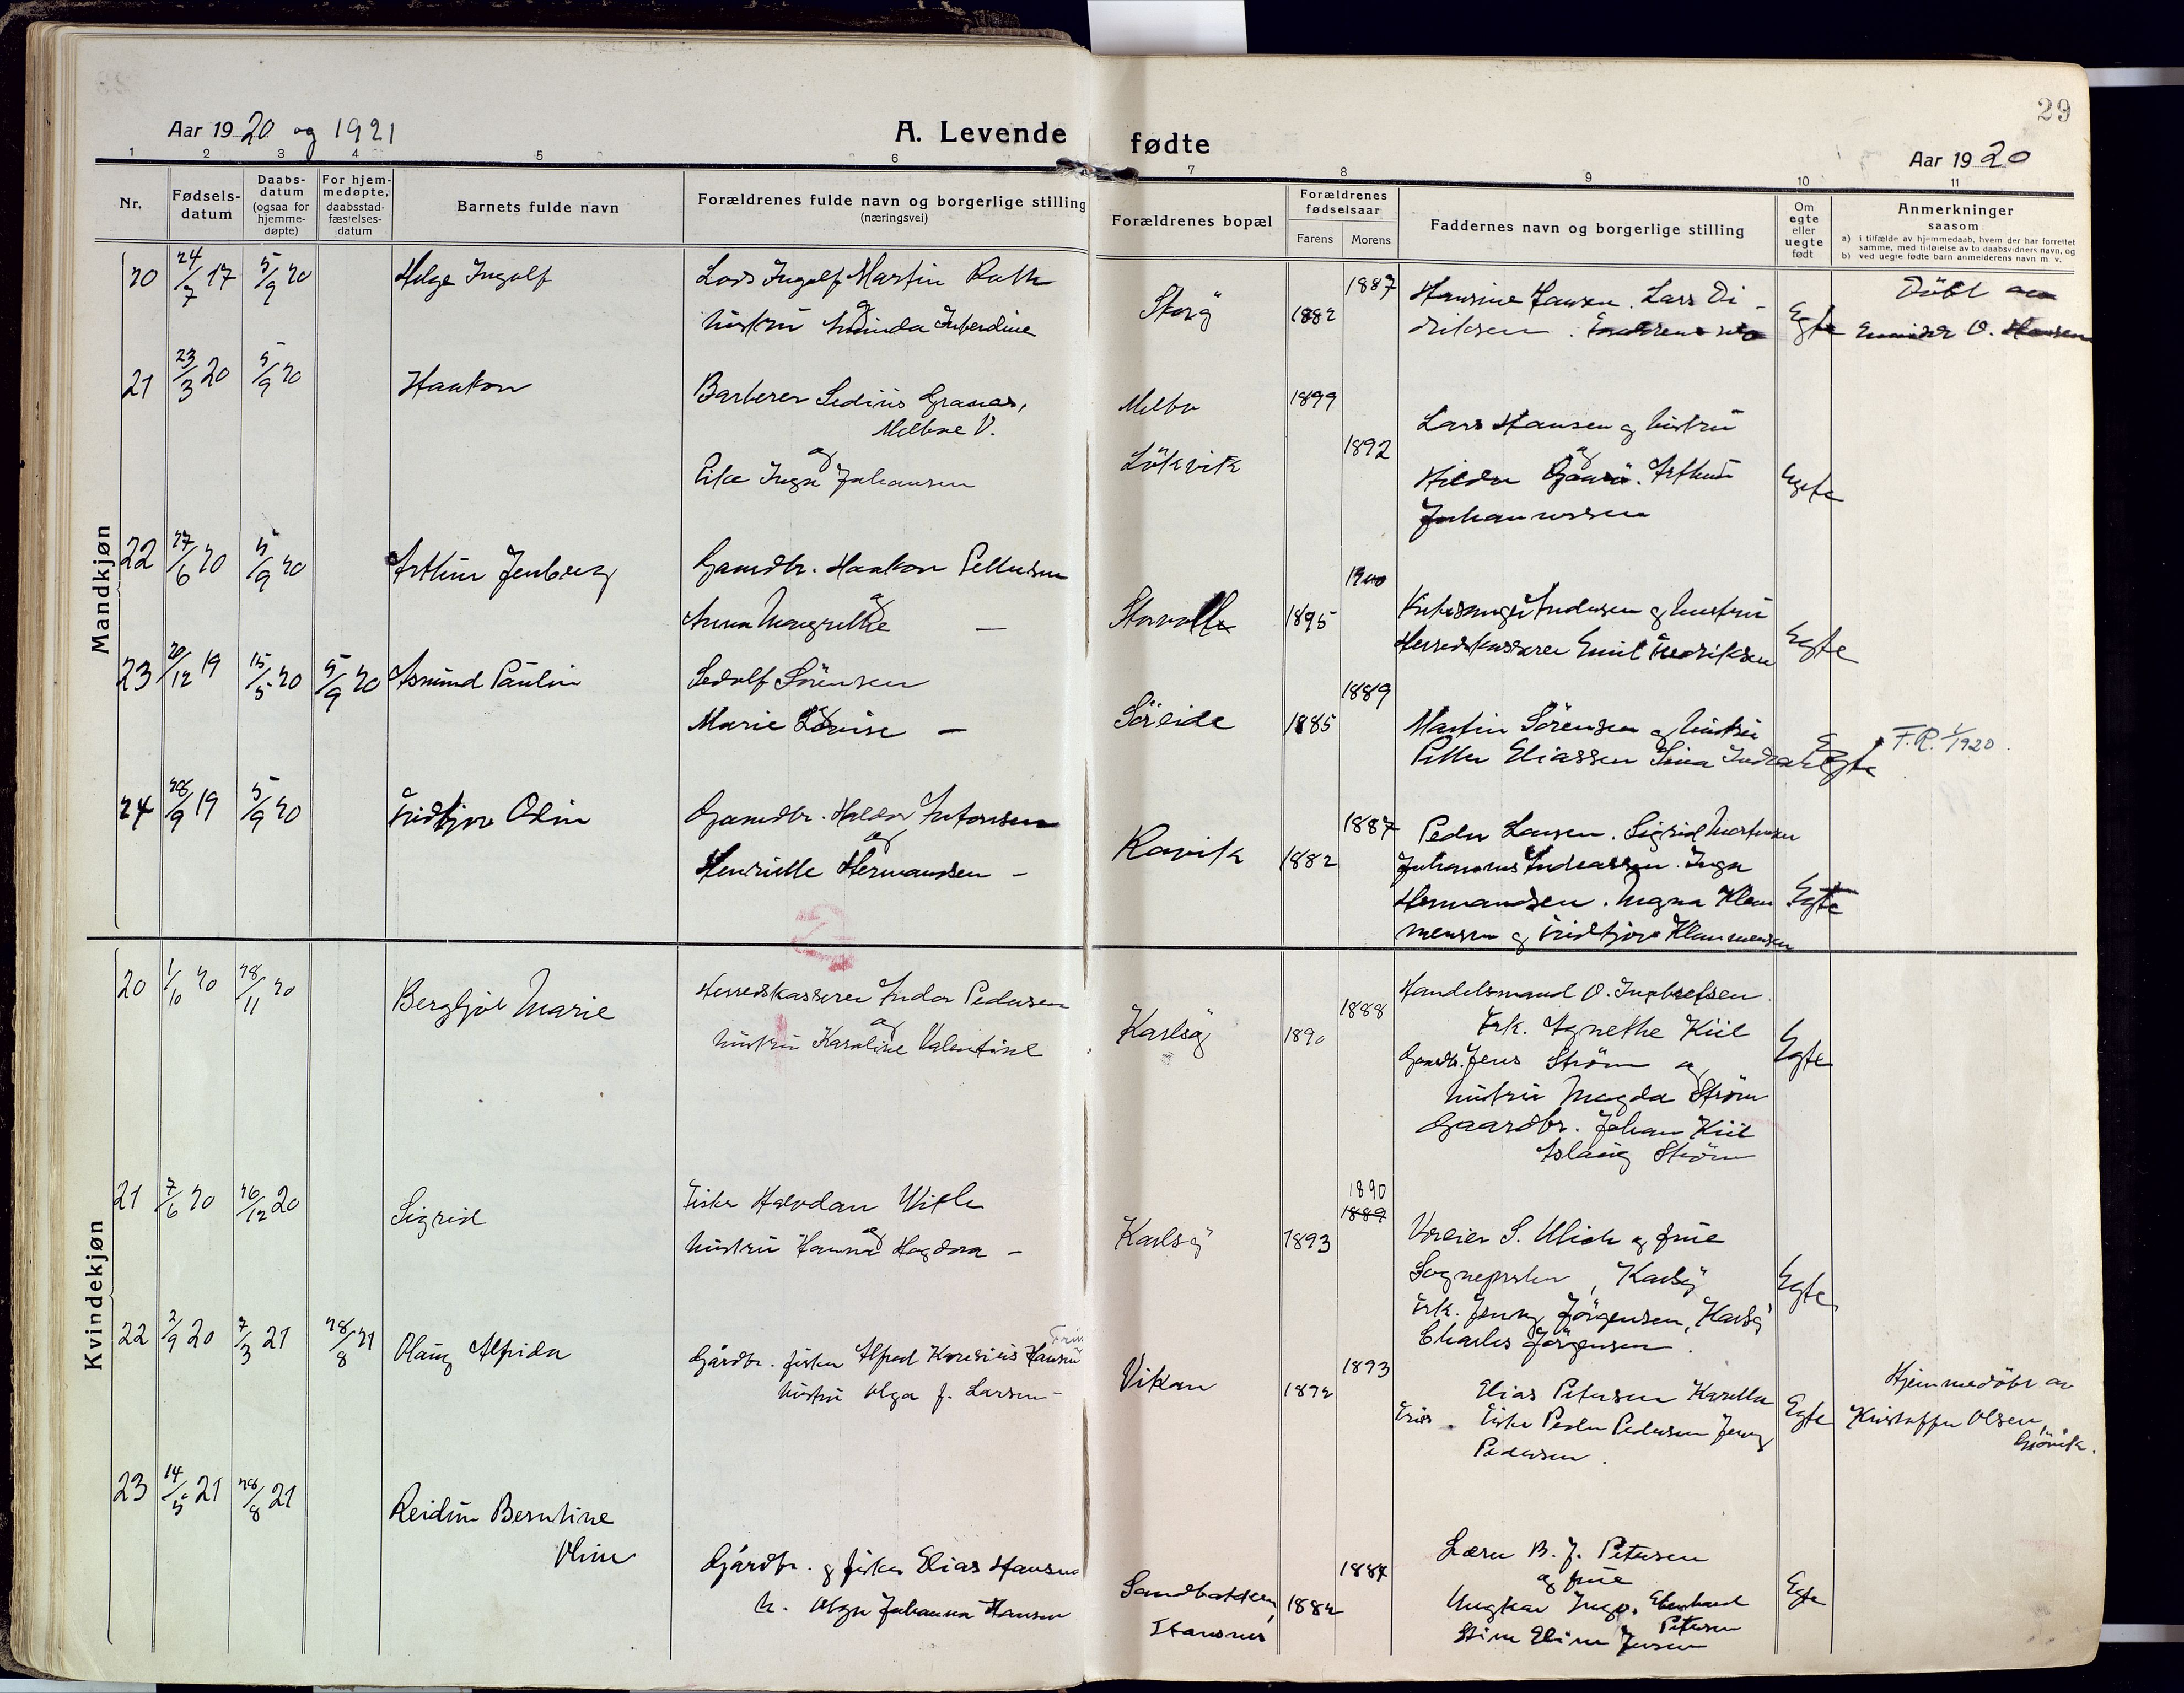 29
Aar 1920 og 1921
A. Levende fødte
Aar 1920
1 2 3 4 5 6 7 8 9 10 11
Nr.
Fødsels-
datum
Daabs-
datum
(ogsaa for
hjemme-
døpte)
For hjem-
medøpte,
daabsstad-
fæstelses-
datum
Barnets fulde navn
Forældrenes fulde navn og borgerlige stilling
(næringsvei)
Forældrenes bopæl
Forældrenes
fødselsaar
Farens Morens
Faddernes navn og borgerlige stilling
Om
egte
eller
uegte
født
Anmerkninger
saasom
a) i tilfælde av hjemmedaab, hvem der har forrettet
samme, med tilføielse av to daabsvidners navn, og
b) ved uegte fødte barn anmelderens navn m. v.
Mandkjøn
20 24/7 17 5/9 20 Helge Ingolf
Lods Ingolf Martin
og
hustru
Storø 1882 1887
Hansine Hansen. Lars Di-
driksen.
Egte
Döbt av
O. Hansen
21 23/3 20 5/9 20 Haakon
Barberer Sedius
Melboe V.
og
Pike Inga Johansen
Melbo 1899
Lökvik 1892
Lars Hansen og hustru
og
Arthur
Johannessen
Egte
22 27/6 20 5/9 20 Arthur Jenberg
Gaardbr. Haakon Pettersen
og
Anna Margrethe —
1895 1900
Kirkesanger Andersen og hustru
Herredskasserer Emil Fredriksen
Egte
23 20/12 19 15/5 20 5/9 20 Asmund Paulin
Sedolf Sörensen
og
Marie Lovise —
Söreide 1885 1889
Martin Sörensen og hustru
Petter Eliassen
Egte
F.R. 1/1920.
24 28/9 19 5/9 20 Fridtjov Odin
Gaardbr. Haldor Antonsen
og
Henriette Hermansen —
Ravik 1882 1887
Peder Larsen. Sigrid Mortensen
Johannes Andreassen. Inga
Hermandsen. Magna Klem
mensen og Fridtjov Klemmensen
Egte
Kvindekjøn
20 1/10 20 28/11 20 Bergljot Marie
Herredskasserer Andor Pedersen
og
hustru Karoline Valentine
Karlsø 1890 1888
Handelsmand O. Ingebretsen.
Frk. Agnethe Kiil
Gaardbr. Jens Ström og
hustru Magda Ström
Gaardbr. Johan Kiil
Aslaug Ström
Egte
21 7/6 20 26/12 20 Sigrid
Fisker Halvdan
og
hustru Hanna Hagdora —
Karlsø 1893 1890
1889
S. Ulich og frue
Sogneprester, Karlsø
Frk. Jenny Jörgensen, Karlsø
Charles Jörgensen.
Egte
22 2/9 20 7/3 21 28/8 21 Olaug Alfrida
Gårdbr. fisker Alfred Hansen
hustru Olga J. Larsen —
Vikan 1892 1893
Elias Petersen
Fisker Peder Pedersen Jenny
Pedersen.
Egte
Hjemmedöbt av
Kristoffer Olsen,
Grövik.
23 14/5 21 28/8 21 Reidun Berntine
Oline
Gårdbr. og fisker Elias Hansen
h. Olga Johanna Hansen
Hansnes 1882 1887
Lærer B. J. Petersen
og frue
Ungkar Inge. Eberhard
Petersen
Stine Eline Jensen
Egte